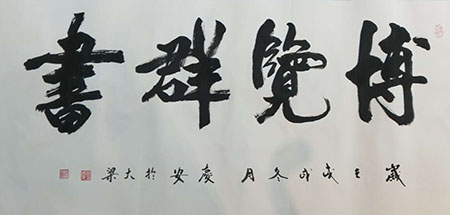 博覽群書
歲在戊戌冬月慶安於大梁